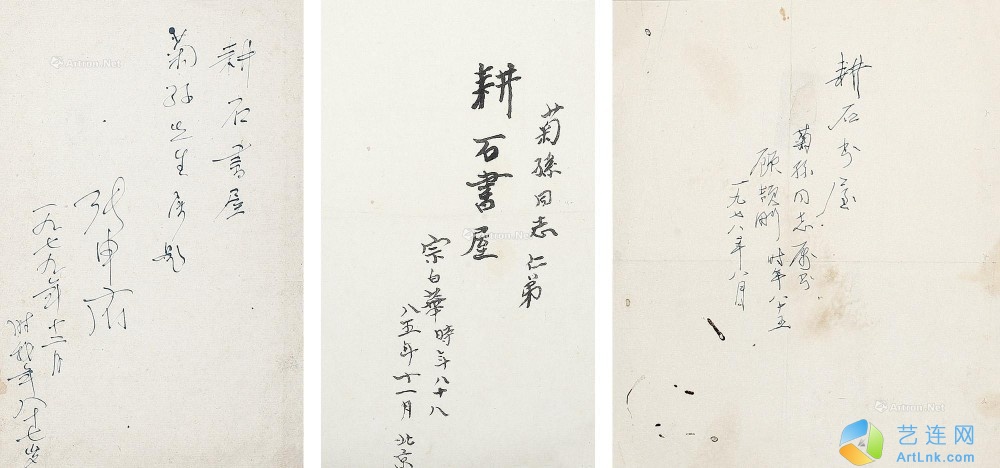 耕石書屋
菊孙先生属题
张申府
一九七九年十二月
时行年八十七岁
菊孫同志仁弟
耕石書屋
宗白華時年八十八
八五年十一月北京
耕石书屋
菊孙同志属书
顾颉刚时年八十五
一九七八年八月
Artron.Net
Artron.Net
Artron.Net
艺连网
ArtLnk.com